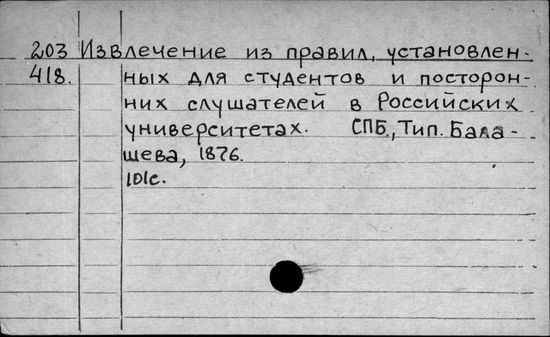 203 Извлечение из правил, установлен-
418. ных для студентов и посторон-
них слушателей в Российских
университетах. СПБ., Тип. Бала-
шева, 1876.
101с.